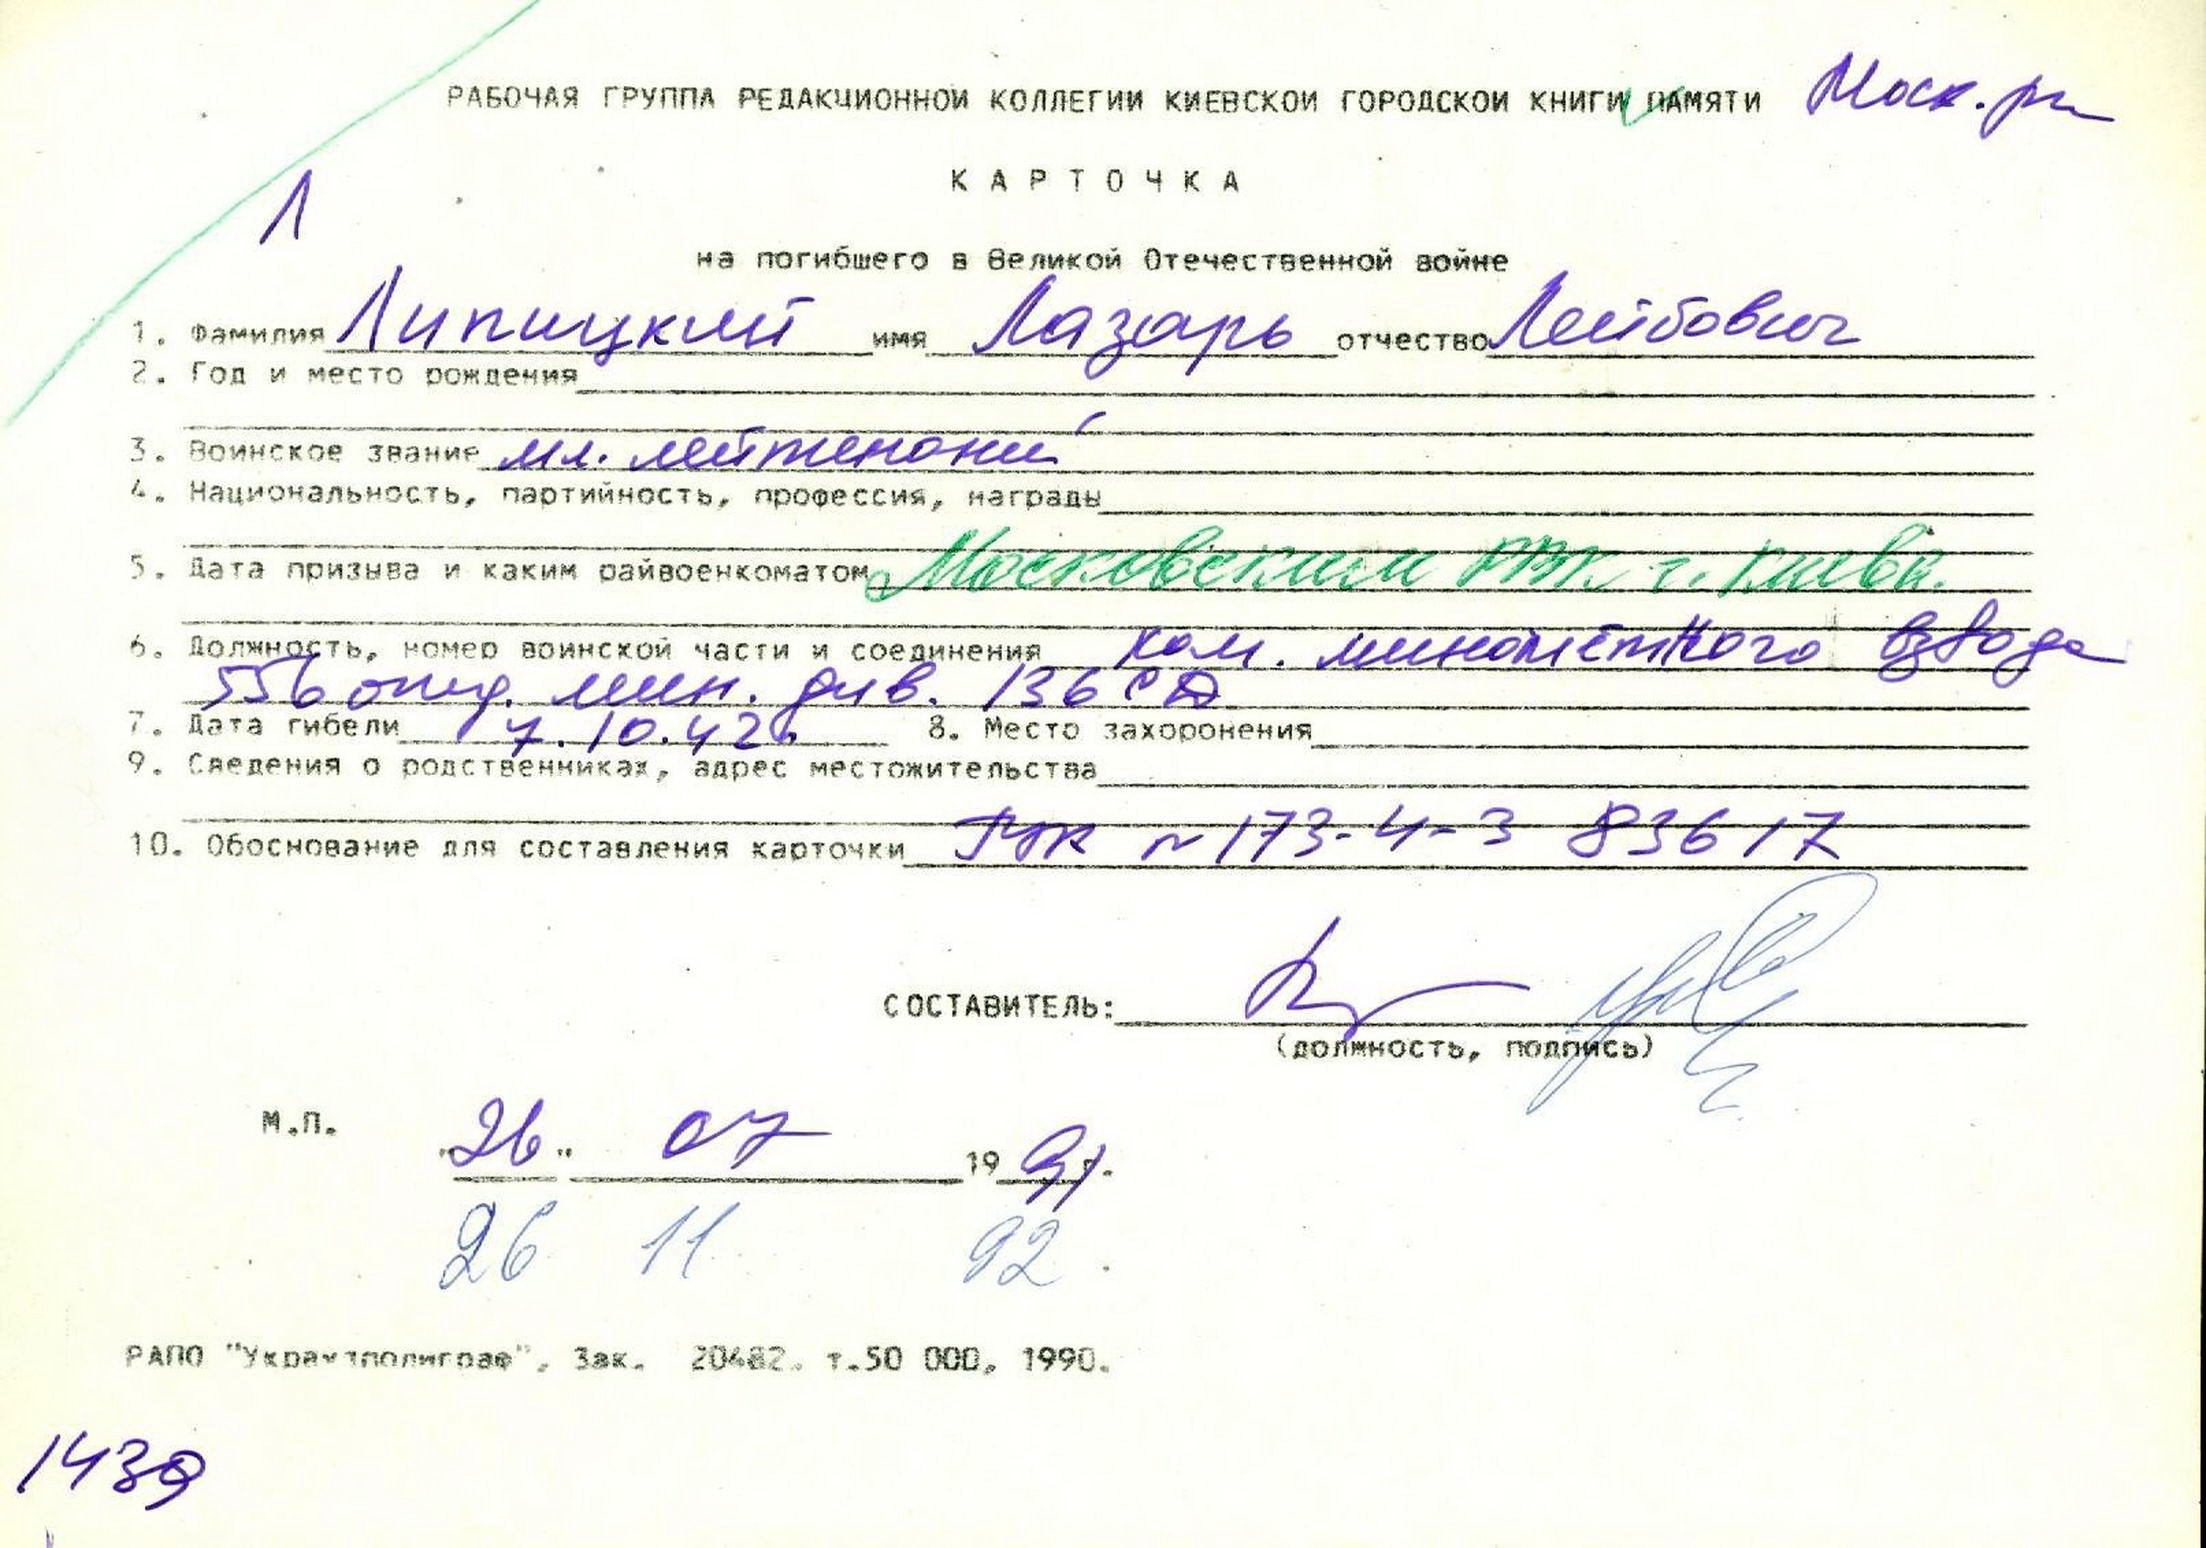 РАБОЧАЯ ГРУППА РЕДАКЦИОННОЙ КОЛЛЕГИИ КИЕВСКОЙ ГОРОДСКОЙ КНИГИ ПАМЯТИ Моск. рн
КАРТОЧКА
Л
на погибшего в Великой Отечественной войне
1. Фамилия Липицкий имя Лазарь отчество Лейбович
2. Год и место рождения
3. Воинское звание мл. лейтенант
4. Национальность, партийность, профессия, награды
5. Дата призыва и каким райвоенкоматом Московским РВК г. Киева.
6. Должность, номер воинской части и соединения ком. миномётного взвода
556 отд. мин. див. 136 СД
7. Дата гибели 17.10.42г. 8. Место захоронения
9. Сведения о родственниках, адрес местожительства
10. Обоснование для составления карточки РВК № 173-4-3 83617
СОСТАВИТЕЛЬ:
(должность, подпись)
М.П. "26" 07 1991г.
26 11 92
РАПО "Укрвузполиграф", Зак. 20482. т.50 000, 1990.
1439